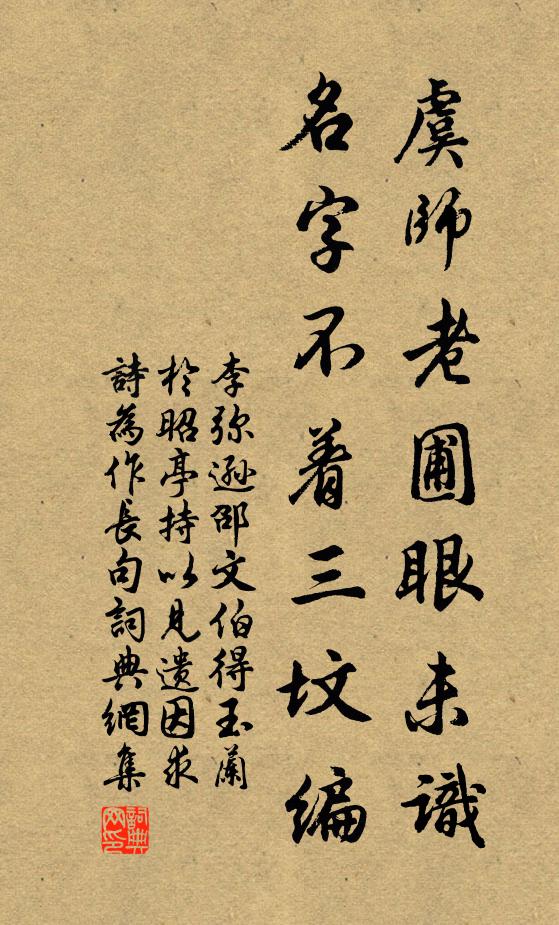 虞師老圃眼未識
名字不着三坟編
李弥遜邵文伯得玉蘭
於昭亭持以見遺因求
詩為作長句詞典網集
詞典网印